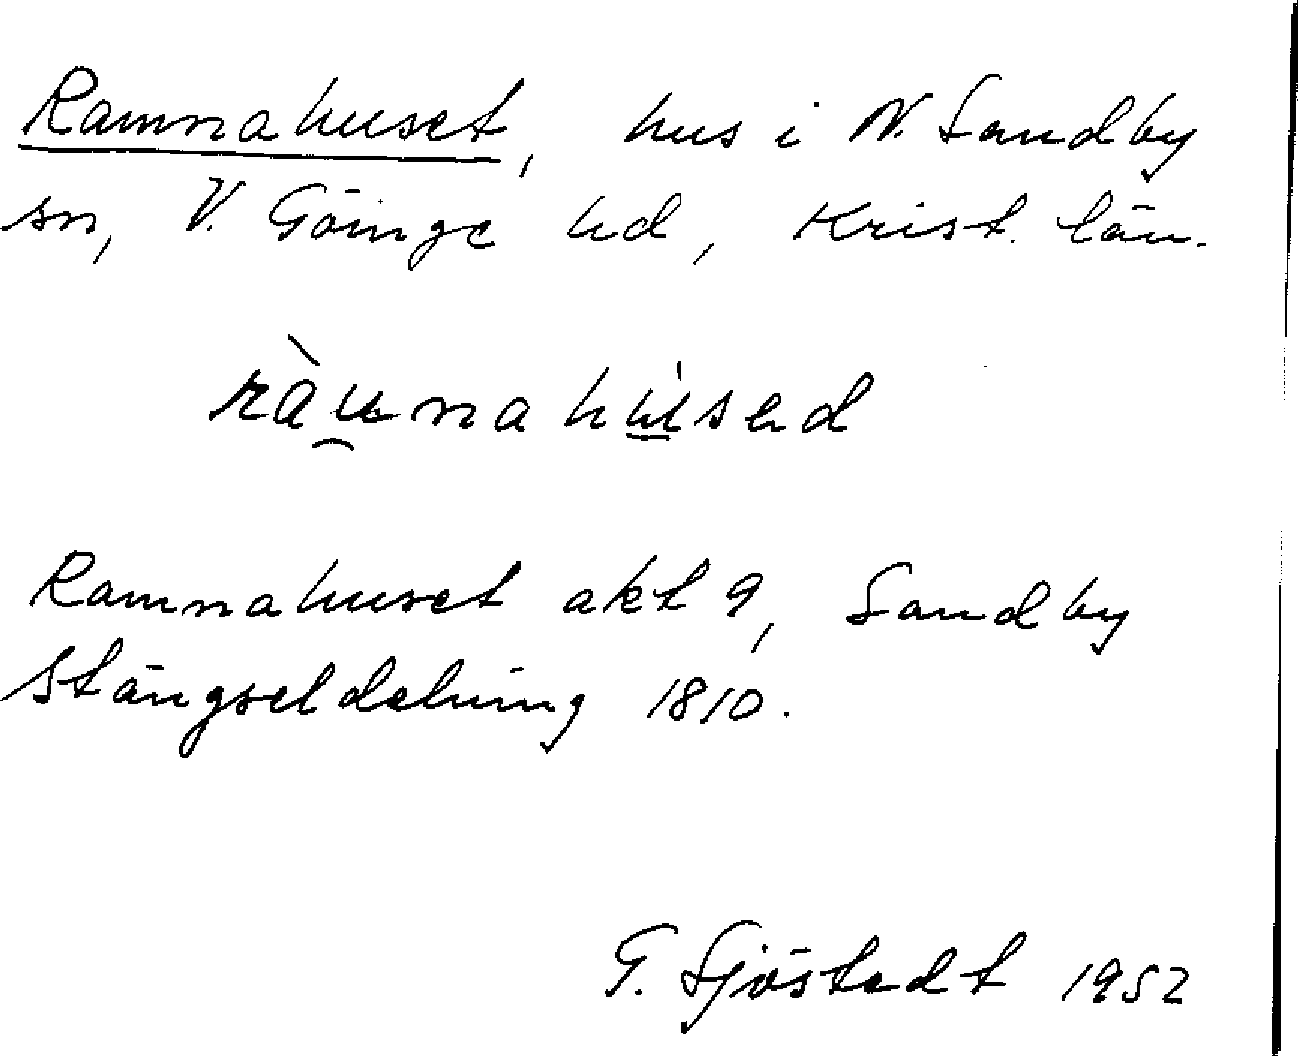 Ramnahuset, hus i N. Sandby
sn, V. Göinge hd, Krist. län.
ràu̯nahu̍sed
Ramnahuset akt 9, Sandby
Stängseldelning 1810.
G. Sjöstedt 1952